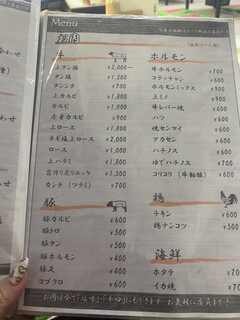 Menu
焼肉
牛
上タン塩 ¥2,000〜
タン塩 ¥1,200
タンシタ ¥700
上カルビ ¥1,800
カルビ ¥1,000
赤身カルビ ¥900
上ロース ¥1,800
ネギ塩上ロース ¥2,000
ロース ¥1,000
上ハラミ ¥1,800
カシラ(ツラミ) ¥700
豚
豚カルビ ¥600
豚トロ ¥500
豚タン ¥500
豚ホルモン ¥400
豚足 ¥400
コブクロ ¥600
ホルモン
牛ホルモン ¥700
コテッチャン ¥600
ホルモンミックス ¥900
上ミノ ¥900
牛レバー焼 ¥600
ハツ ¥600
焼センマイ ¥600
アカセン ¥600
ハチノス ¥600
ゆでハチノス ¥700
コリコリ(牛動脈) ¥600
鶏
チキン ¥600
鶏ナンコツ ¥500
海鮮
ホタテ ¥700
イカ焼 ¥700
お肉は全て「塩味」「辛口」にもできます お気軽に店員まで!